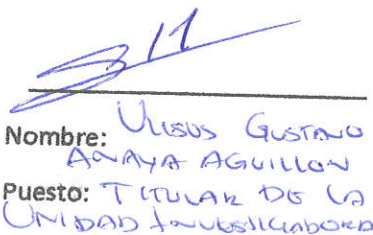 Nombre: Ulises Gustavo
Anaya Aguillon
Puesto: Titular de la
Unidad Investigadora